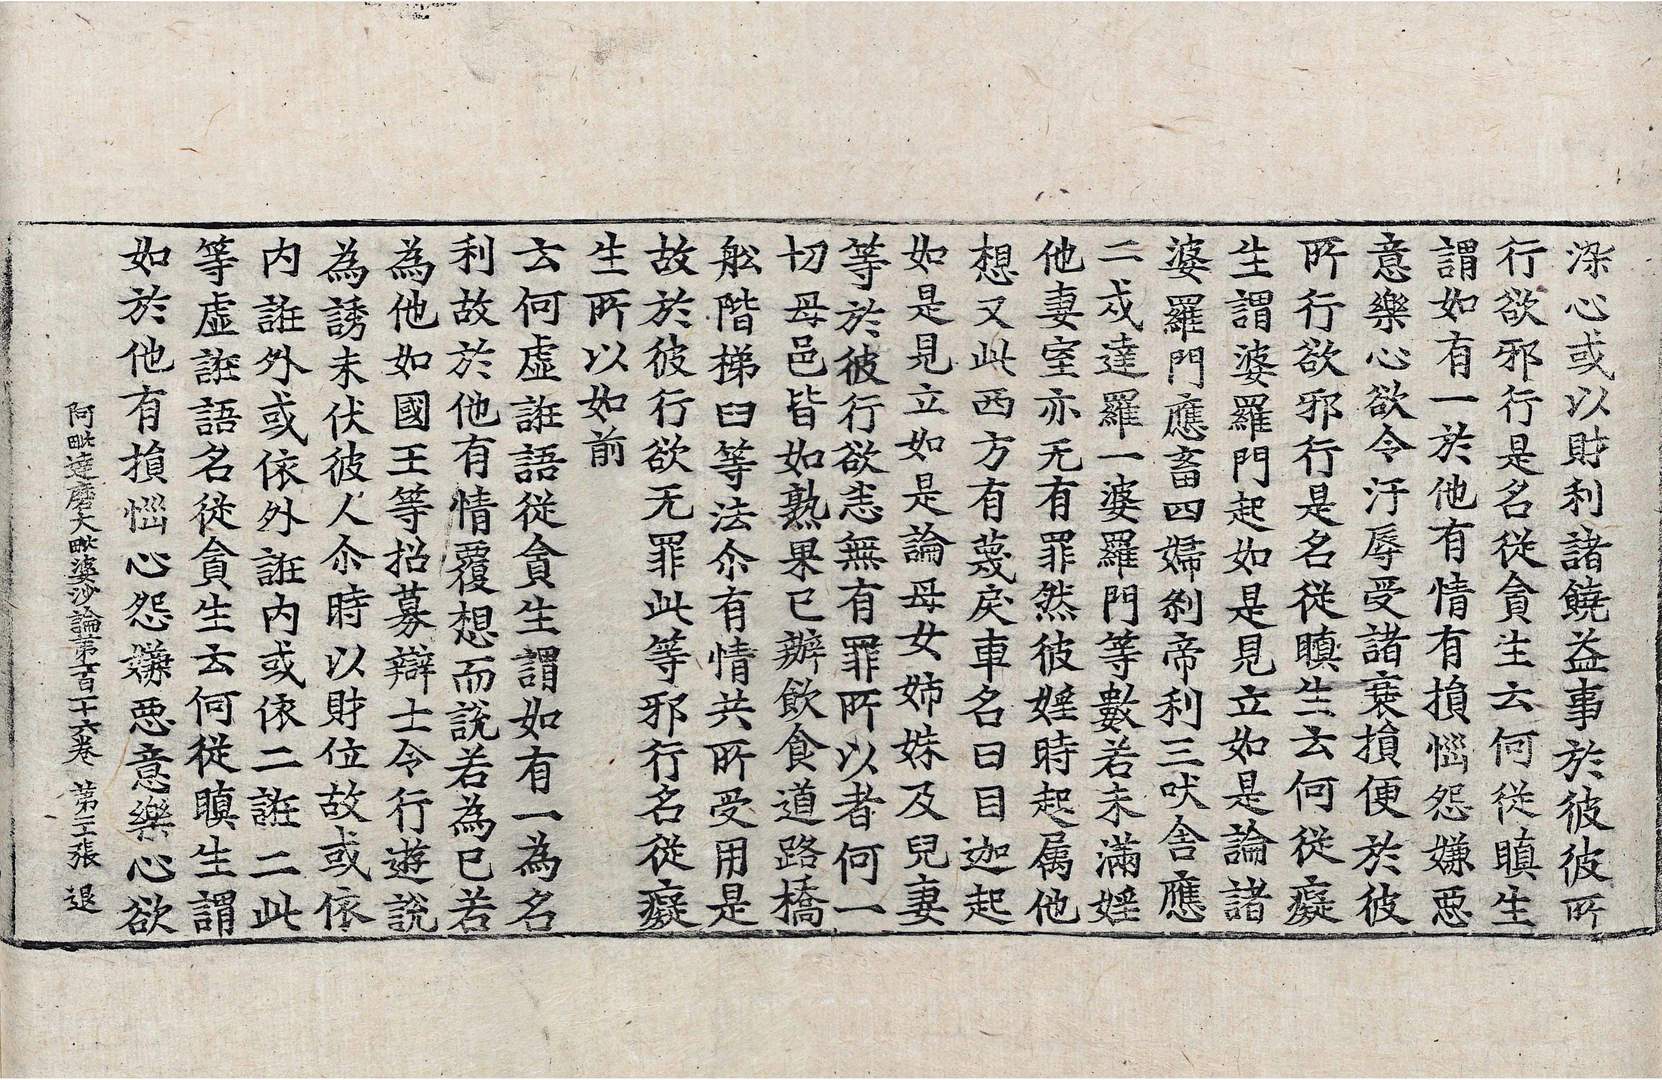 染心或以財利諸饒益事於彼彼所
行欲邪行是名從貪生云何從瞋生
謂如有一於他有情有損惱怨嫌惡
意樂心欲令汙辱受諸衰損便於彼
所行欲邪行是名從瞋生云何從癡
生謂婆羅門起如是見立如是論諸
婆羅門應畜四婦刹帝利三吠舍應
二戍達羅一婆羅門等數若未滿婬
他妻室亦无有罪然彼婬時起属他
想又此西方有蔑戾車名曰目迦起
如是見立如是論母女姉妹及兒妻
等於彼行欲悉無有罪所以者何一
切母邑皆如熟果已辦飲食道路橋
舩階梯臼等法尒有情共所受用是
故於彼行欲无罪此等邪行名從癡
生所以如前
云何虛誑語從貪生謂如有一為名
利故於他有情覆想而說若為已若
為他如國王等招募辯士令行遊說
為誘未伏彼人尒時以財位故或依
内誑外或依外誑内或依二誑二此
等虛誑語名從貪生云何從瞋生謂
如於他有損惱心怨嫌惡意樂心欲
阿毗達磨大毗婆沙論第一百一十六卷 第三張 退